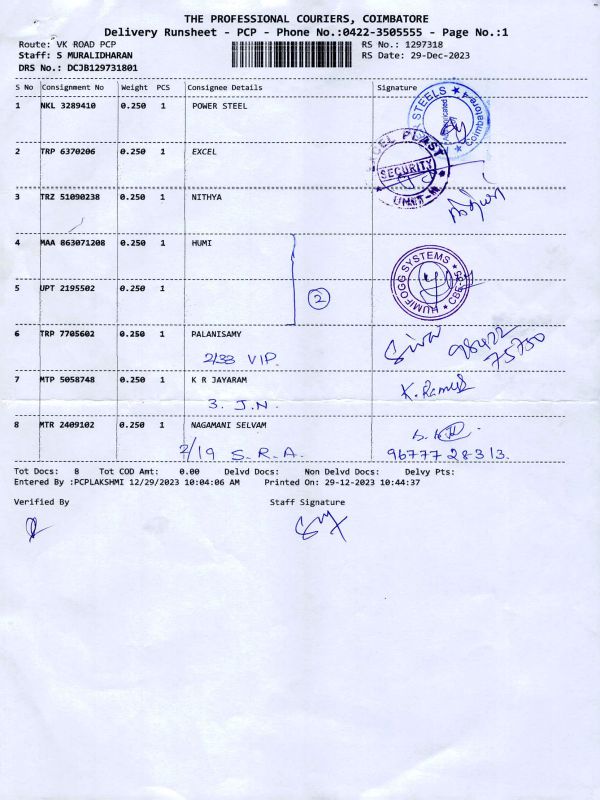 THE PROFESSIONAL COURIERS, COIMBATORE
Delivery Runsheet - PCP - Phone No.:0422-3505555 - Page No.:1
Route: VK ROAD PCP RS No.: 1297318
Staff: S MURALIDHARAN RS Date: 29-Dec-2023
DRS No.: DCJB129731801
S No Consignment No Weight PCS Consignee Details Signature
1 NKL 3289410 0.250 1 POWER STEEL
STEELS ★ Coimbatore4 ★
2 TRP 6370206 0.250 1 EXCEL
EXCEL PLAST
SECURITY
UNIT-II
3 TRZ 51090238 0.250 1 NITHYA
4 MAA 863071208 0.250 1 HUMI
HUMIFOGG SYSTEMS ★ CBE-35 ★
5 UPT 2195502 0.250 1
2
6 TRP 7705602 0.250 1 PALANISAMY
Siva 98422
75750
2/38 VIP.
7 MTP 5058748 0.250 1 K R JAYARAM
K. Ramesh
3. J.N.
8 MTR 2409102 0.250 1 NAGAMANI SELVAM
2/19 S.R.A. 96777 28313.
Tot Docs: 8 Tot COD Amt: 0.00 Delvd Docs: Non Delvd Docs: Delvy Pts:
Entered By :PCPLAKSHMI 12/29/2023 10:04:06 AM Printed On: 29-12-2023 10:44:37
Verified By Staff Signature